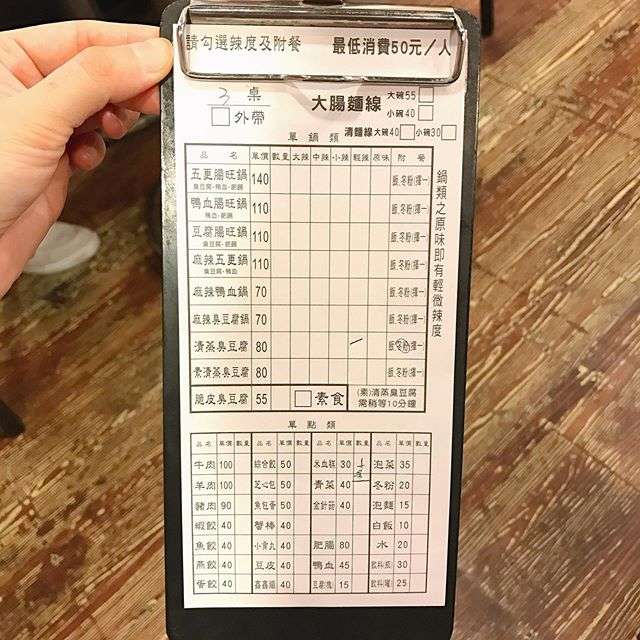 請勾選辣度及附餐 最低消費50元／人
3 桌 大腸麵線 大碗55
外帶 小碗40
單鍋類 清麵線大碗40 小碗30
品名 單價 數量 大辣 中辣 小辣 輕辣 原味 附餐
五更腸旺鍋 140 飯.冬粉(擇一)
臭豆腐-鴨血-肥腸
鴨血腸旺鍋 110 飯.冬粉(擇一)
鴨血-肥腸
豆腐腸旺鍋 110 飯.冬粉(擇一)
臭豆腐-肥腸
麻辣五更鍋 110 飯.冬粉(擇一)
臭豆腐-鴨血
麻辣鴨血鍋 70 飯.冬粉(擇一)
麻辣臭豆腐鍋 70 飯.冬粉(擇一)
清蒸臭豆腐 80 飯.冬粉(擇一)
素清蒸臭豆腐 80 飯.冬粉(擇一)
脆皮臭豆腐 55 素食 (素)清蒸臭豆腐
需稍等10分鐘
鍋類之原味即有輕微辣度
單點類
品名 單價 數量 品名 單價 數量 品名 單價 數量 品名 單價 數量
牛肉 100 綜合餃 50 米血糕 30 泡菜 35
羊肉 100 芝心包 50 青菜 40 冬粉 20
豬肉 90 魚包蛋 50 金針菇 40 泡麵 15
蝦餃 40 蟹棒 40 白飯 10
魚餃 40 小貢丸 40 肥腸 80 水 20
燕餃 40 豆皮 40 鴨血 45 飲料(瓶) 30
蛋餃 40 鑫鑫腸 40 豆腐(塊) 15 飲料(罐) 25